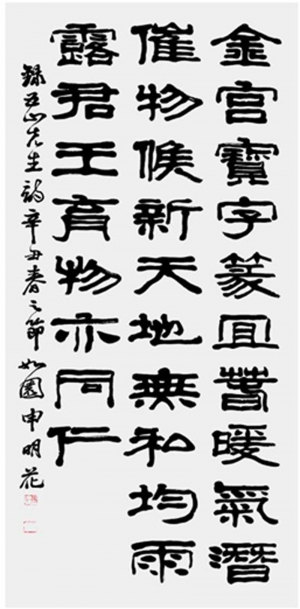 金宮寶字篆回春暖氣潛
催物候新天地無私均雨
露君王育物亦同仁
錄五山先生詩辛丑春之節如園申明花